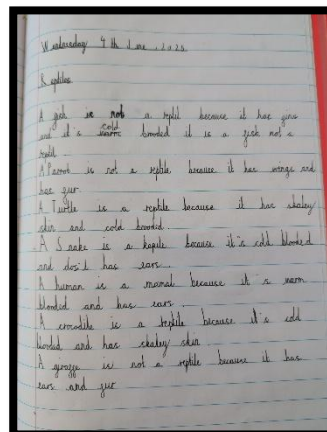 Wednesday 4th June 2025
Reptiles
A fish is not a reptil because it has gins
and it's cold blooded it is a fish not a
reptil
A Parrot is not a reptile because it has wings and
has fur.
A Turtle is a reptile because it has skaley
skin and cold blooded.
A Snake is a because it's cold blooded
and has ears.
A human is a mamal because it's warm
blooded and has ears.
A crocodile is a reptile because it's cold
blooded and has skaley skin.
A giraffe is not a reptile because it has
ears and fur